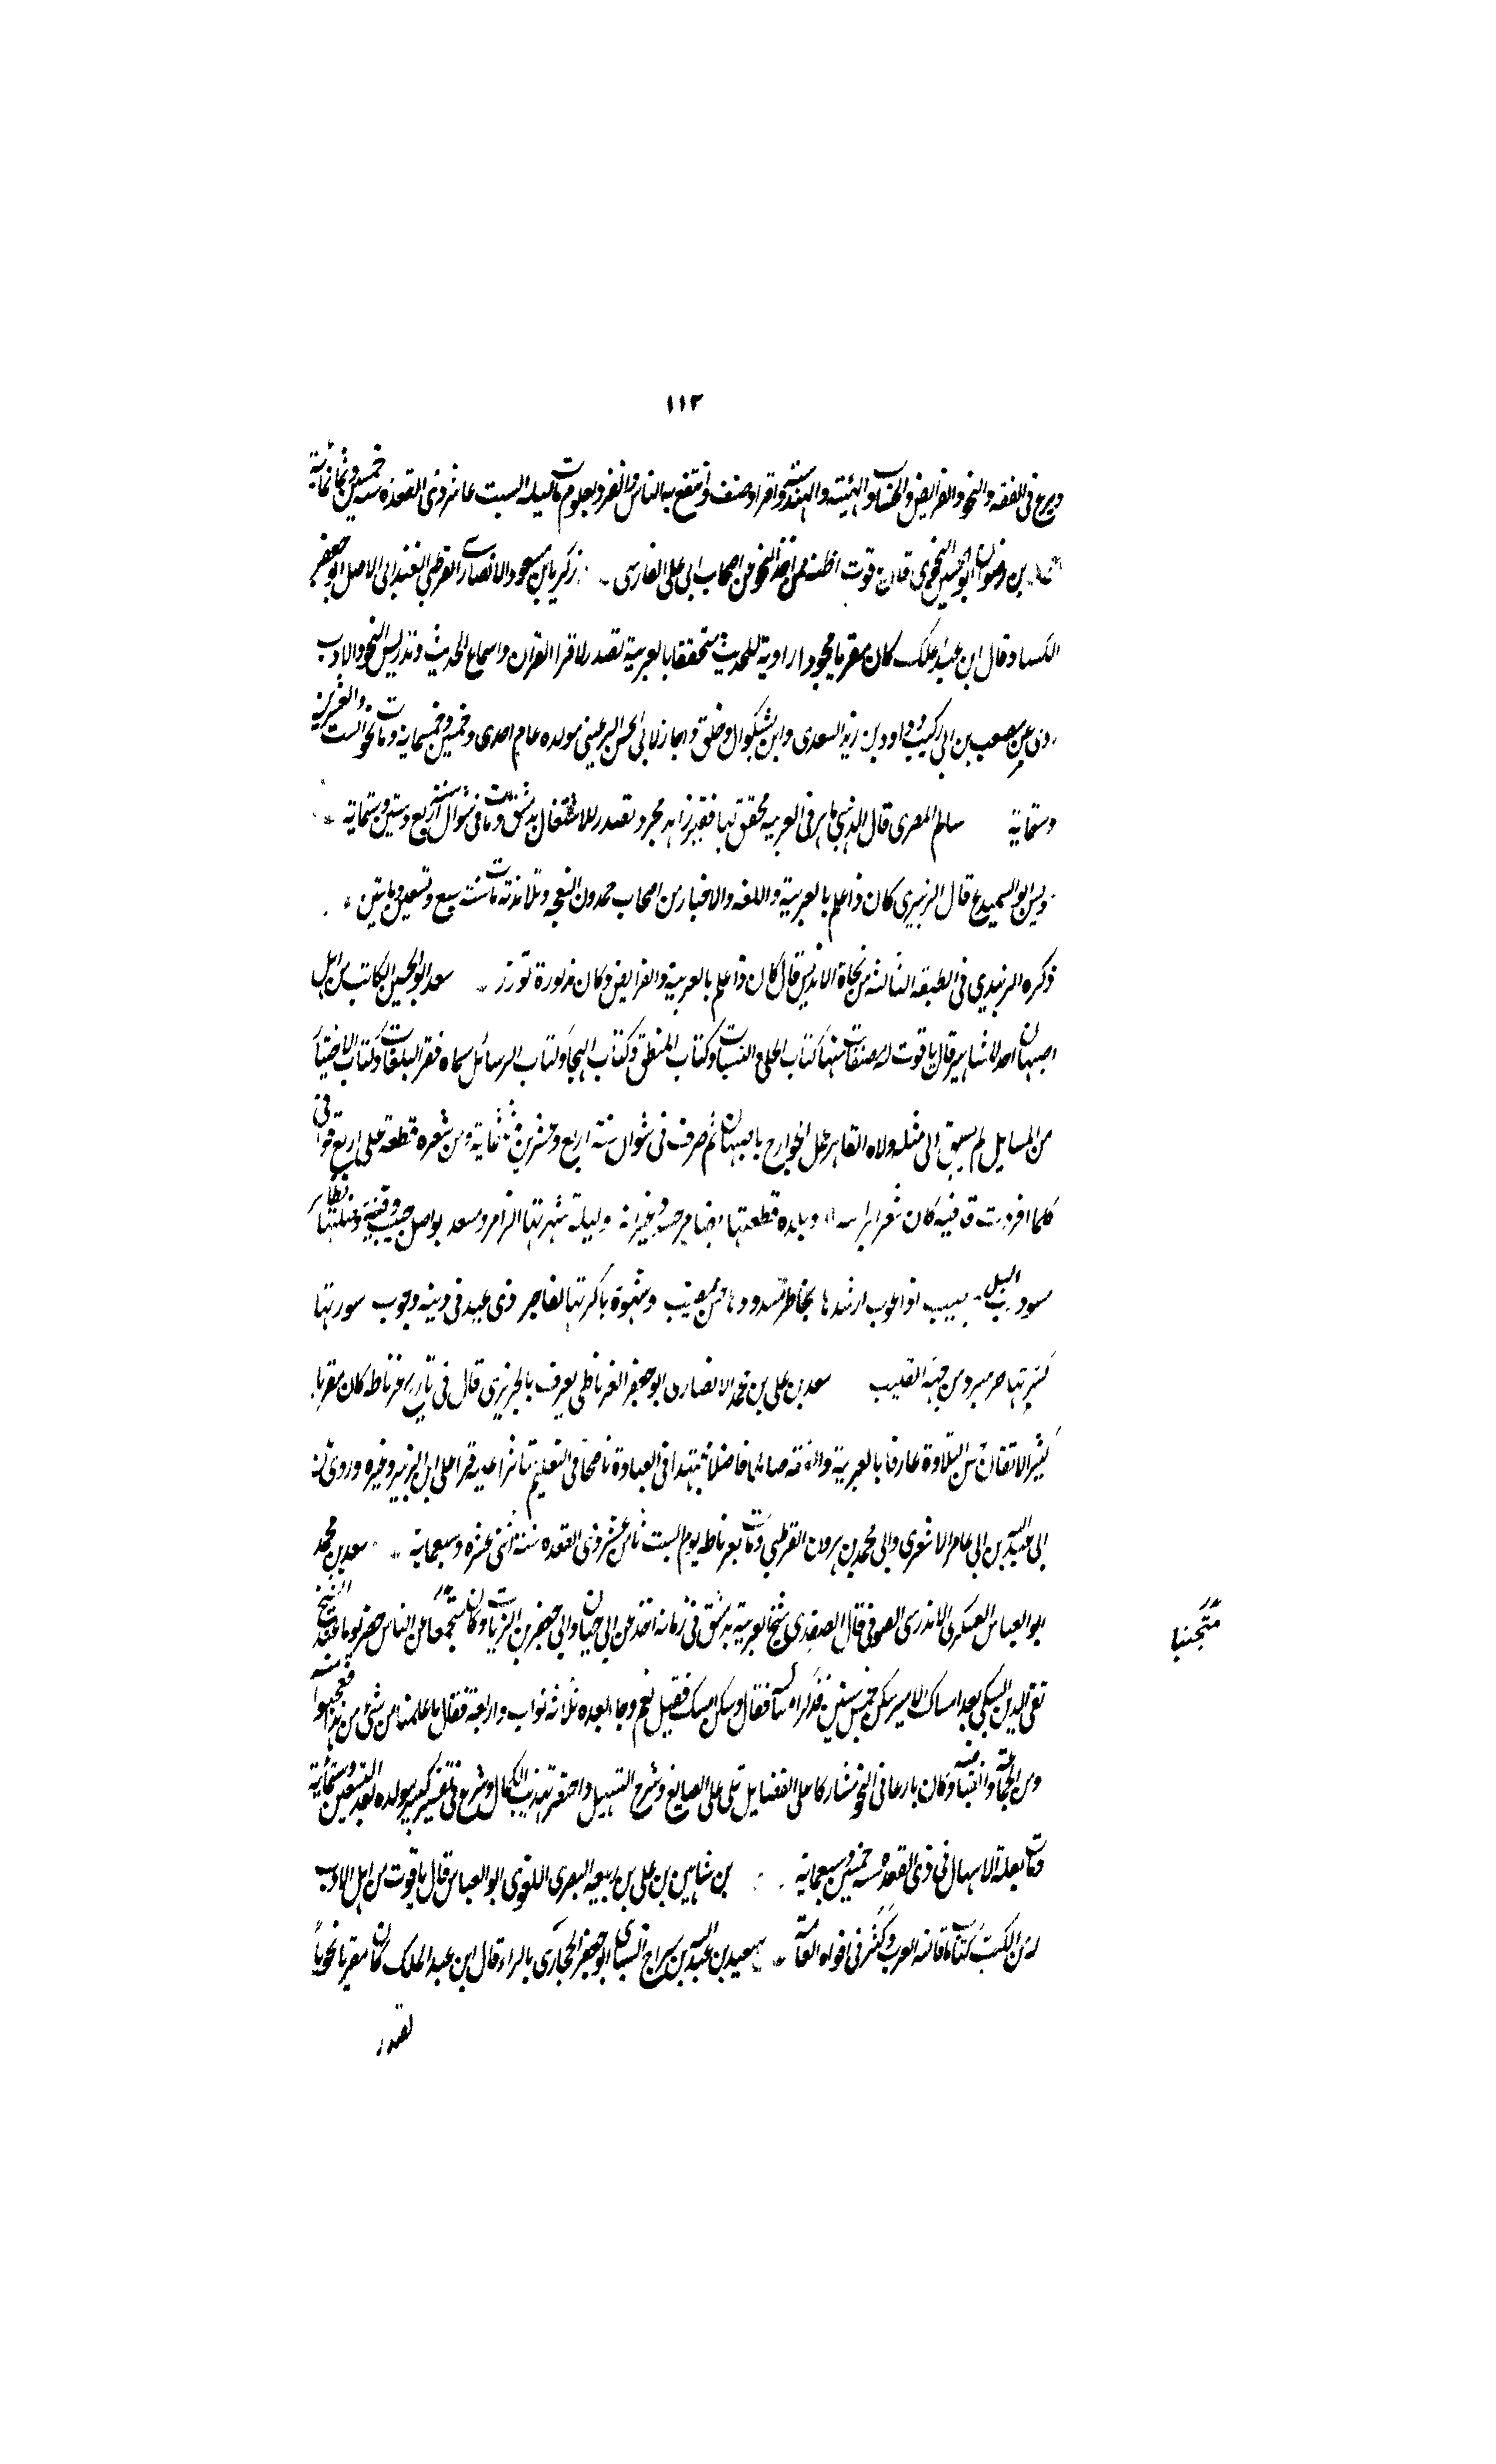 ١١٢
وبرع في الفقه والنحو والفرايض والحساب والهيئة والهندسة واقرا وصنف وانتفع به الناس وانفرد بعلوم مات ليلة السبت عاشر ذي القعدة سنة خمسين وثمانمائة
بن رضوان ابو الحسين النحوي قال ياقوت اظنه ممن اخذ النحو من اصحاب ابي علي الفارسي زكريا بن مسعود الانصاري القرطبي الاصل ابو جعفر
الكساد قال ابن عبد الملك كان مقريا مجودا راوية للحديث متحققا بالعربية تصدر لاقرا القران واسماع الحديث وتدريس النحو والادب
روى عن مصعب بن ابي ركب وداود بن يزيد السعدي وابن بشكوال وخلق واجاز لابي الحسن الرعيني مولده عام احدى وخمسين وخمسماية ومات نحو الست والعشرين
وستماية سالم المصري قال الذهبي ماهر في العربية محقق لها فقير زاهد مجرد تصدر للاشتغال بدمشق ومات في شوال سنة اربع وستين وستماية
ابو السميدع قال الزبيدي كان ذا علم بالعربية واللغة والاخبار من اصحاب حمدون النعجه وتلامذته مات سنة سبع وتسعين ومايتين
ذكره الزبيدي في الطبقة الثالثة من نحاة الاندلس قال كان ذا علم بالعربية والفرايض وكان سعد ابو الحسين الكاتب من اهل
اصبهان احد المشاهير قال ياقوت له مصنفات منها كتاب الحلى والثياب وكتاب المنطق وكتاب الهجا وكتاب الرسائل سماه فقر البلغا وكتاب الاختيار
من المسايل لم يسبق الى مثله ولاه القاهر عمل الخراج باصبهان ثم صرف في شوال سنة اربع وعشرين وثلثماية ومن شعره قطعة على اربع قوافي
كلما افردت قافية كان شعرا براسه وبلدة قطعتها بضامر وليلة سهرتها لزائر ومسعد بواصل حبيب وقينة وصلتها
بطاهر مسود ترب العلى نجيب اذا غوت ارشدها بخاطر مسدد وهاجس مصيب وقهوة باكرتها لفاجر ذي عند في دينه وحوب سورتها
كسرتها من جمة القليب سعد بن علي بن محمد الانصاري ابو جعفر الغرناطي يعرف بالجزيري قال في تاريخ غرناطة كان مقريا
كثير الاتقان حسن التلاوة عارفا بالعربية والفقه صالحا فاضلا مجتهدا في العبادة ناصحا في التعليم مثابرا عليه قرا على ابن الزبير وغيره وروى عن
ابي عبد الله بن ابي عامر الاشعري وابي محمد بن هرون القرطبي ومات بغرناطة يوم السبت ثامن عشر ذي القعدة سنة اثنى عشرة وسبعماية سعد بن محمد
ابو العباس العسكري الاندرشي الصوفي قال الصفدي شيخ العربية بدمشق في زمانه اخذ عن ابي حيان وابي جعفر بن الزيات وكان متجمعا عن الناس حضر يوما عند الشيخ
متجنبا
تقي الدين السبكي بعد امساك الامير تنكز بخمس سنين فذكر امساكه فقال وتنكز امسك فقيل نعم وجاء بعده ثلاثة نواب واربعة فقال ما علمت من شئ من هذا فتعجبوا منه
ومن انجماعه وانقباضه وكان بارعا في النحو مشاركا في الفضايل تلى على الصايغ وشرح التسهيل واختصر تهذيب الكمال وشرع في تفسير كبير مولده بعد التسعين وستمائة
ومات بعلة الاسهال في ذي القعدة سنة خمسين وسبعماية بن شاهين بن علي بن ربيعة البصري اللغوي ابو العباس قال ياقوت من اهل الادب
له من الكتب كتاب ما قالته العرب وكثر في افواه العامة سعيد بن عبد الله بن سراج السبائي ابو جعفر الحجاري بالراء قال ابن عبد الملك كان مقريا نحويا
تصدر